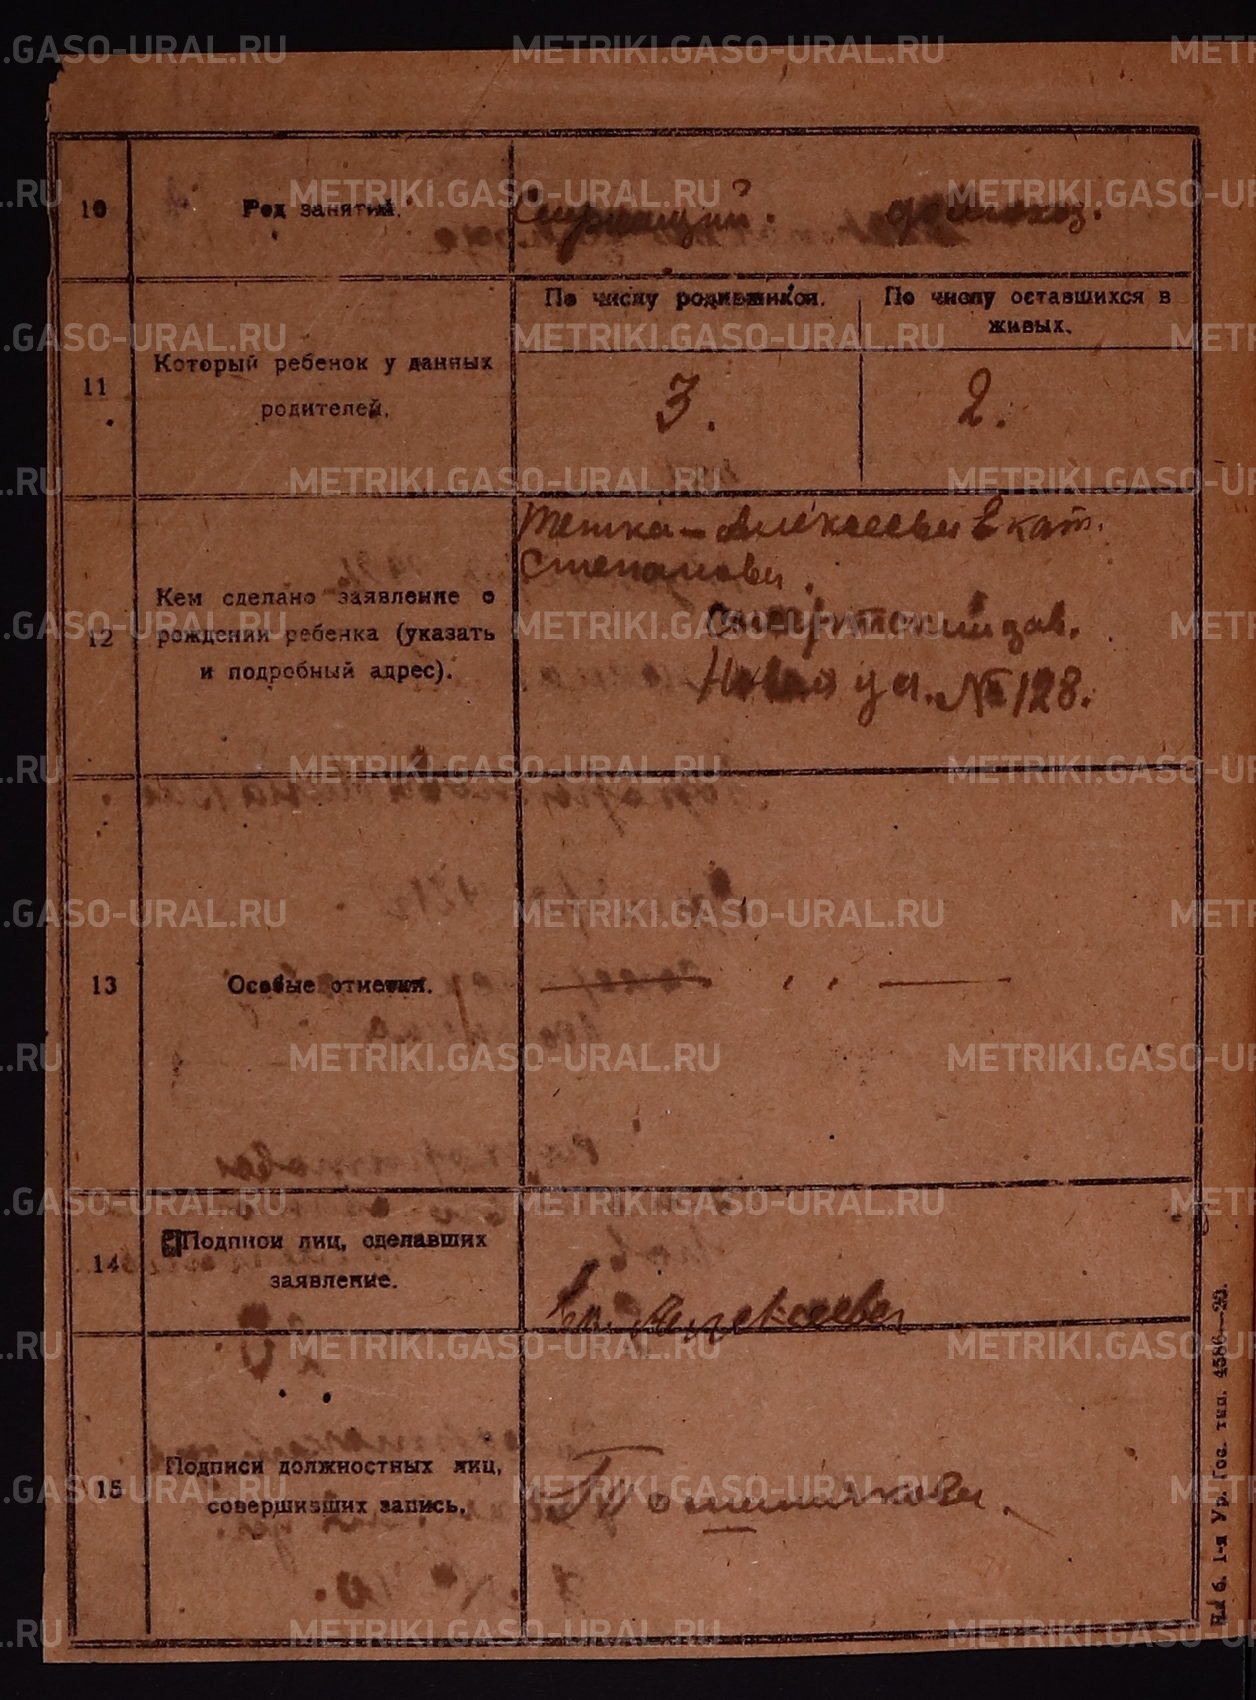 METRIKI.GASO-URAL.RU
10
Род занятий.
домохоз.
11
Который ребенок у данных
родителей.
По числу родившихся.
По числу оставшихся в
живых.
3.
2.
12
Кем сделано заявление о
рождении ребенка (указать
и подробный адрес).
тетка — Алексеева Екат.
Степанова.
зав.
Новая ул. № 128.
13
Особые отметки.
14
Подписи лиц, сделавших
заявление.
Ек. Алексеева
15
Подписи должностных лиц,
совершивших запись.
1-я Ур. Гос. тип. 4586—23.